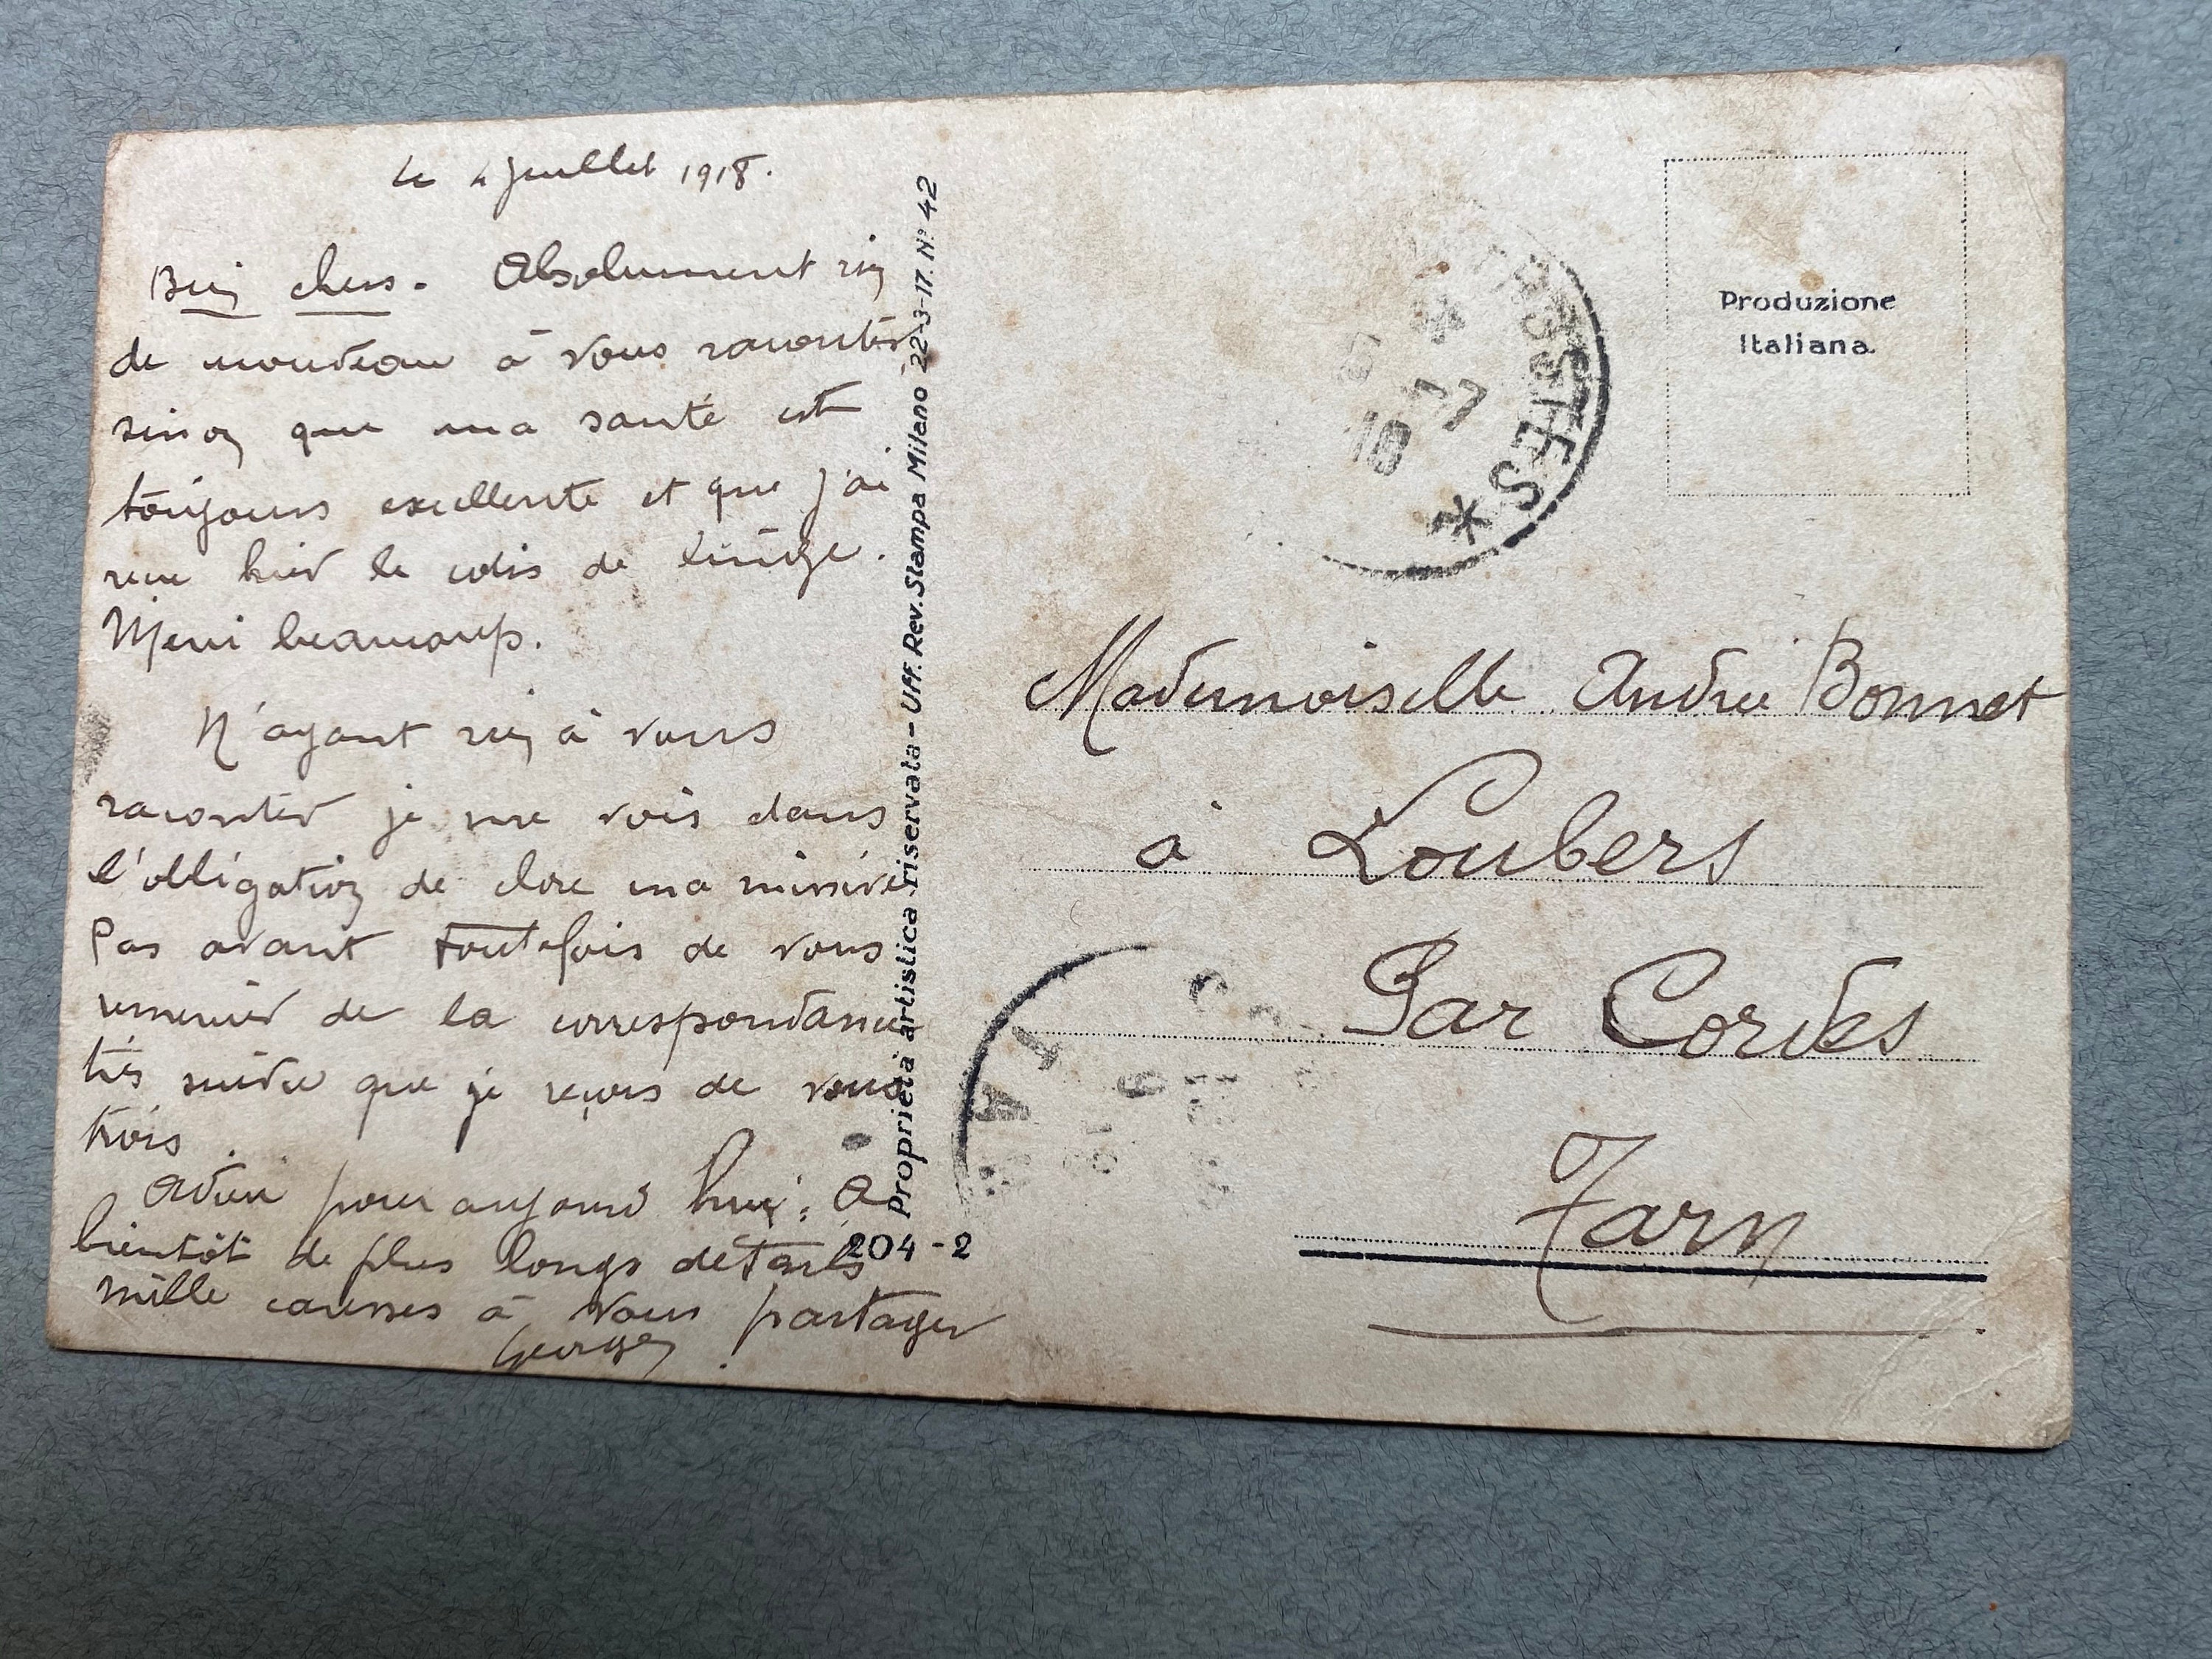 Le 4 juillet 1918.
Bien chers. Absolument rien
de nouveau à vous raconter
sinon que ma santé est
toujours excellente et que j'ai
reçu hier le colis de linge.
Merci beaucoup.
N'ayant rien à vous
raconter je me vois dans
l'obligation de clore ma missive
Pas avant toutefois de vous
remercier de la correspondance
très suivie que je reçois de vous
trois.
Adieu pour aujourd'hui. A
bientôt de plus longs détails
mille caresses à vous partager
Georges.
Proprietà artistica riservata - Uff. Rev. Stampa Milano 22-3-17. N. 42
204-2
Produzione
Italiana.
POSTES
*
7
18
Mademoiselle Andrée Bonnet
à Loubers
Par Cordes
Tarn